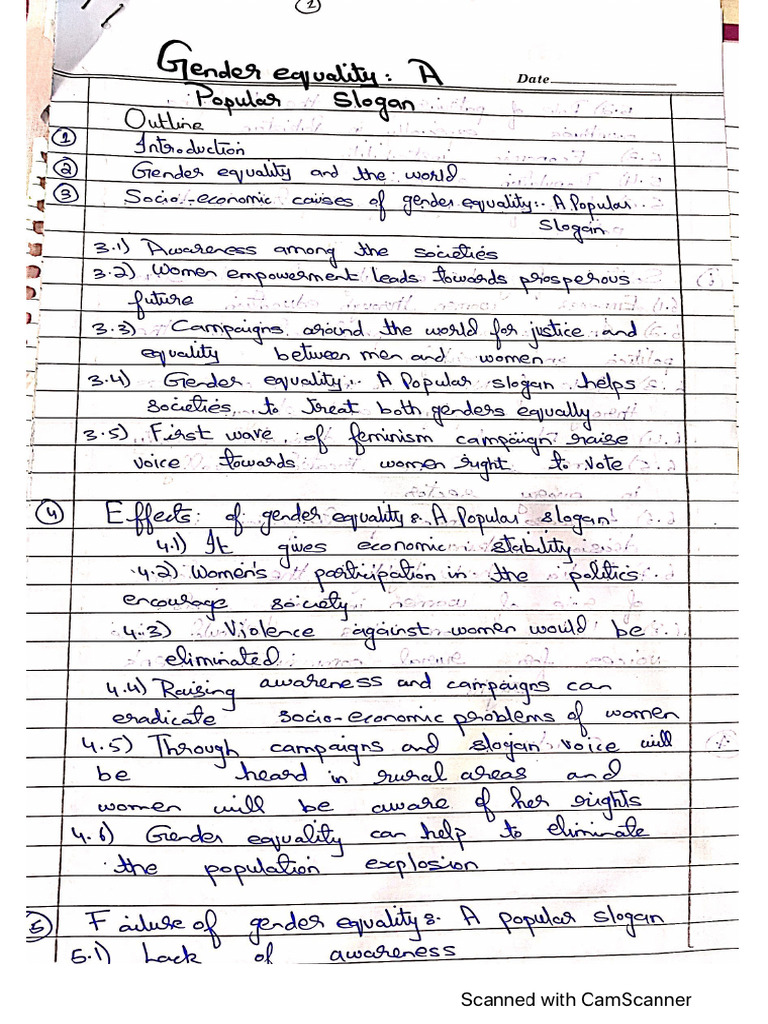 (1)
Gender equality: A
Date
Popular Slogan
Outline
(1) Introduction
(2) Gender equality and the world
(3) Socio-economic causes of gender equality:. A Popular
Slogan
3.1) Awareness among the societies
3.2) Women empowerment leads towards prosperous
future
3.3) Campaigns around the world for justice and
equality between men and women
3.4) Gender equality:. A Popular slogan helps
societies to treat both genders equally
3.5) First wave of feminism campaign raise
voice towards women right to vote
(4) Effects: of gender equality:. A Popular slogan
4.1) It gives economic stability
4.2) Women's participation in the politics
encourage society
4.3) Violence against women would be
eliminated.
4.4) Raising awareness and campaigns can
eradicate socio-economic problems of women
4.5) Through campaigns and slogan voice will
be heard in rural areas and
women will be aware of her rights
4.6) Gender equality can help to eliminate
the population explosion
(5) Failure of gender equality:. A popular slogan
5.1) Lack of awareness
Scanned with CamScanner